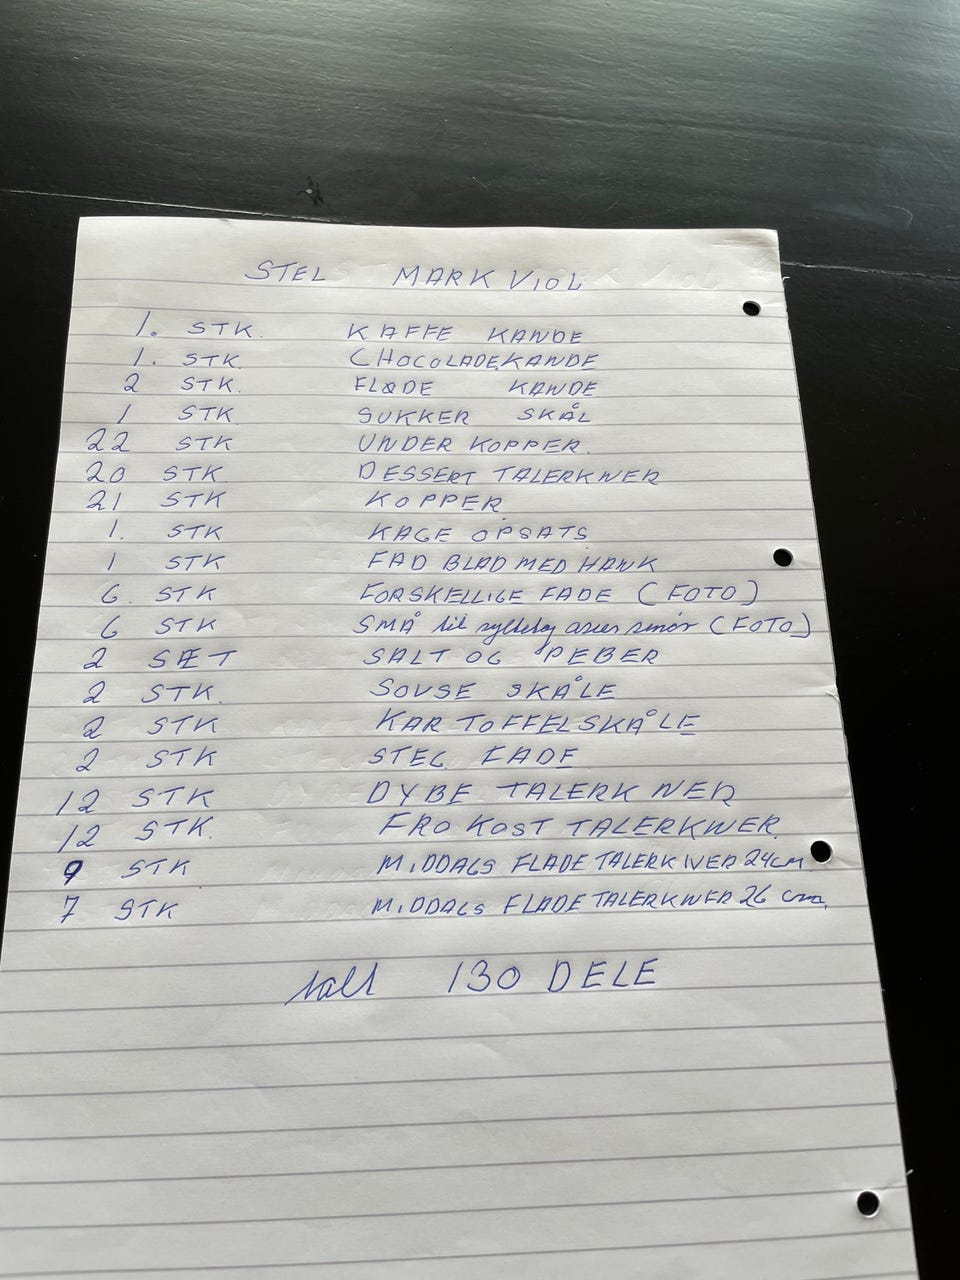 STEL MARK VIOL
1. STK. KAFFE KANDE
1. STK. CHOCOLADEKANDE
2 STK. FLØDE KANDE
1 STK SUKKER SKÅL
22 STK UNDER KOPPER.
20 STK. DESSERT TALERKNER
21 STK KOPPER
1. STK KAGE OPSATS
1 STK FAD BLAD MED HANK
6. STK FORSKELLIGE FADE (FOTO)
6 STK SMÅ til syltetøj asier smør (FOTO)
2 SÆT SALT OG PEBER
2 STK. SOVSE SKÅLE
2 STK KARTOFFELSKÅLE
2 STK STEG FADE
12 STK DYBE TALERKNER
12 STK. FROKOST TALERKNER
9 STK MIDDAGS FLADE TALERKNER 24CM
7 STK MIDDAGS FLADE TALERKNER 26 cm.
talt 130 DELE